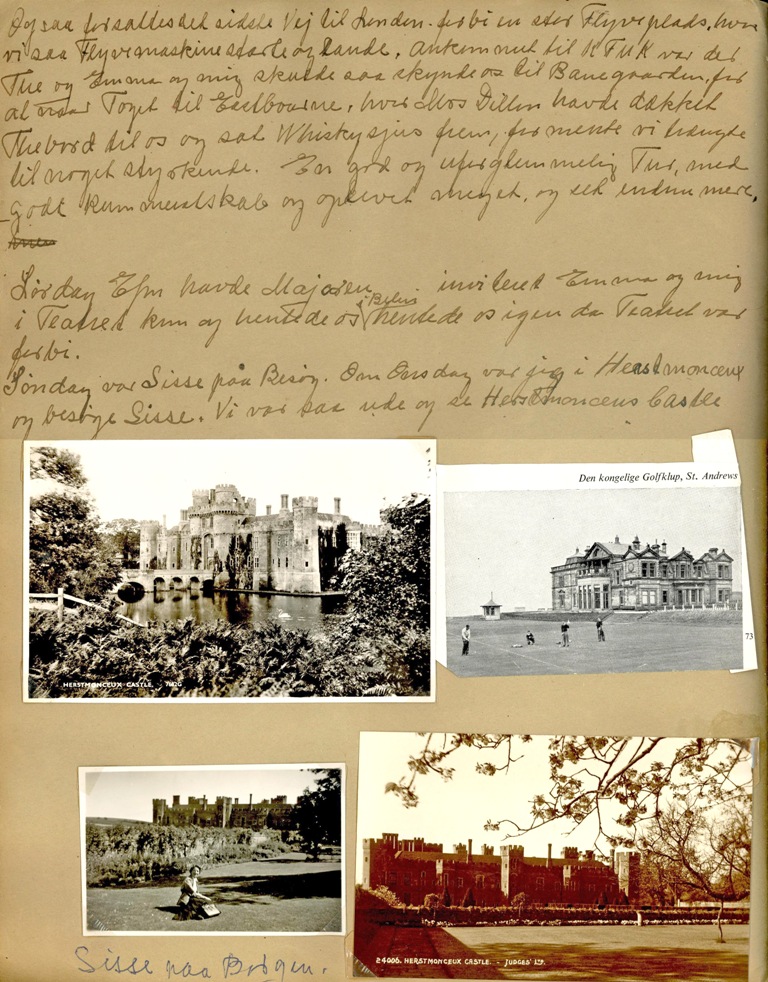 Og saa forsattes det sidste Vej til London. forbi en stor Flyveplads, hvor
vi saa Flyvemaskine starte og lande. Ankommet til KFUK var der
The og Emma og mig skulde saa skynde os til Banegaarden, for
at naar Toget til Eastbourne, hvor Mrs Dillon havde dækket
Thebord til os og sat Whiskysjus frem, for mente vi trængte
til noget styrkende. En god og uforglemmelig Tur, med
godt kammeratskab og oplevet meget, og set endnu mere.
Lørdag Efm havde Majoren inviteret Emma og mig
i Teatret kom og hentede os i Bilen hentede os igen da Teatret var
forbi.
Søndag var Sisse paa Besøg. Om Onsdag var jeg i Herstmonceux
og besøge Sisse. Vi var saa ude og se Herstmonceus Castle
HERSTMONCEUX CASTLE.
Den kongelige Golfklup, St. Andrews
73
Sisse paa Borgen.
24006. HERSTMONCEUX CASTLE. - JUDGES' LTD.